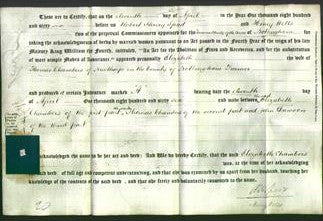 These are to Certify, that on the eleventh day of April in the Year One thousand eight hundred
and sixty before and Henry Wells
two of the perpetual Commissioners appointed for the of Nottingham for
taking the acknowledgments of deeds by married women pursuant to an Act passed in the Fourth Year of the reign of his late
Majesty King William the Fourth, intituled, "An Act for the Abolition of Fines and Recoveries, and for the substitution
of more simple Modes of Assurance;" appeared personally Elizabeth the Wife of
Thomas Chambers of in the County of Nottingham Farmer
and produced a certain Indenture marked A bearing date the eleventh day
of April One thousand eight hundred and sixty and made between Elizabeth
Chambers of the first part, Thomas Chambers of the second part and John
of the third part
and acknowledged the same to be her act and deed: And We do hereby Certify, that the said Elizabeth Chambers
was at the time of her acknowledging
the said deed of full age and competent understanding, and that she was examined by us apart from her husband, touching
her knowledge of the contents of the said deed, and that she freely and voluntarily consented to the same.
Henry Wells